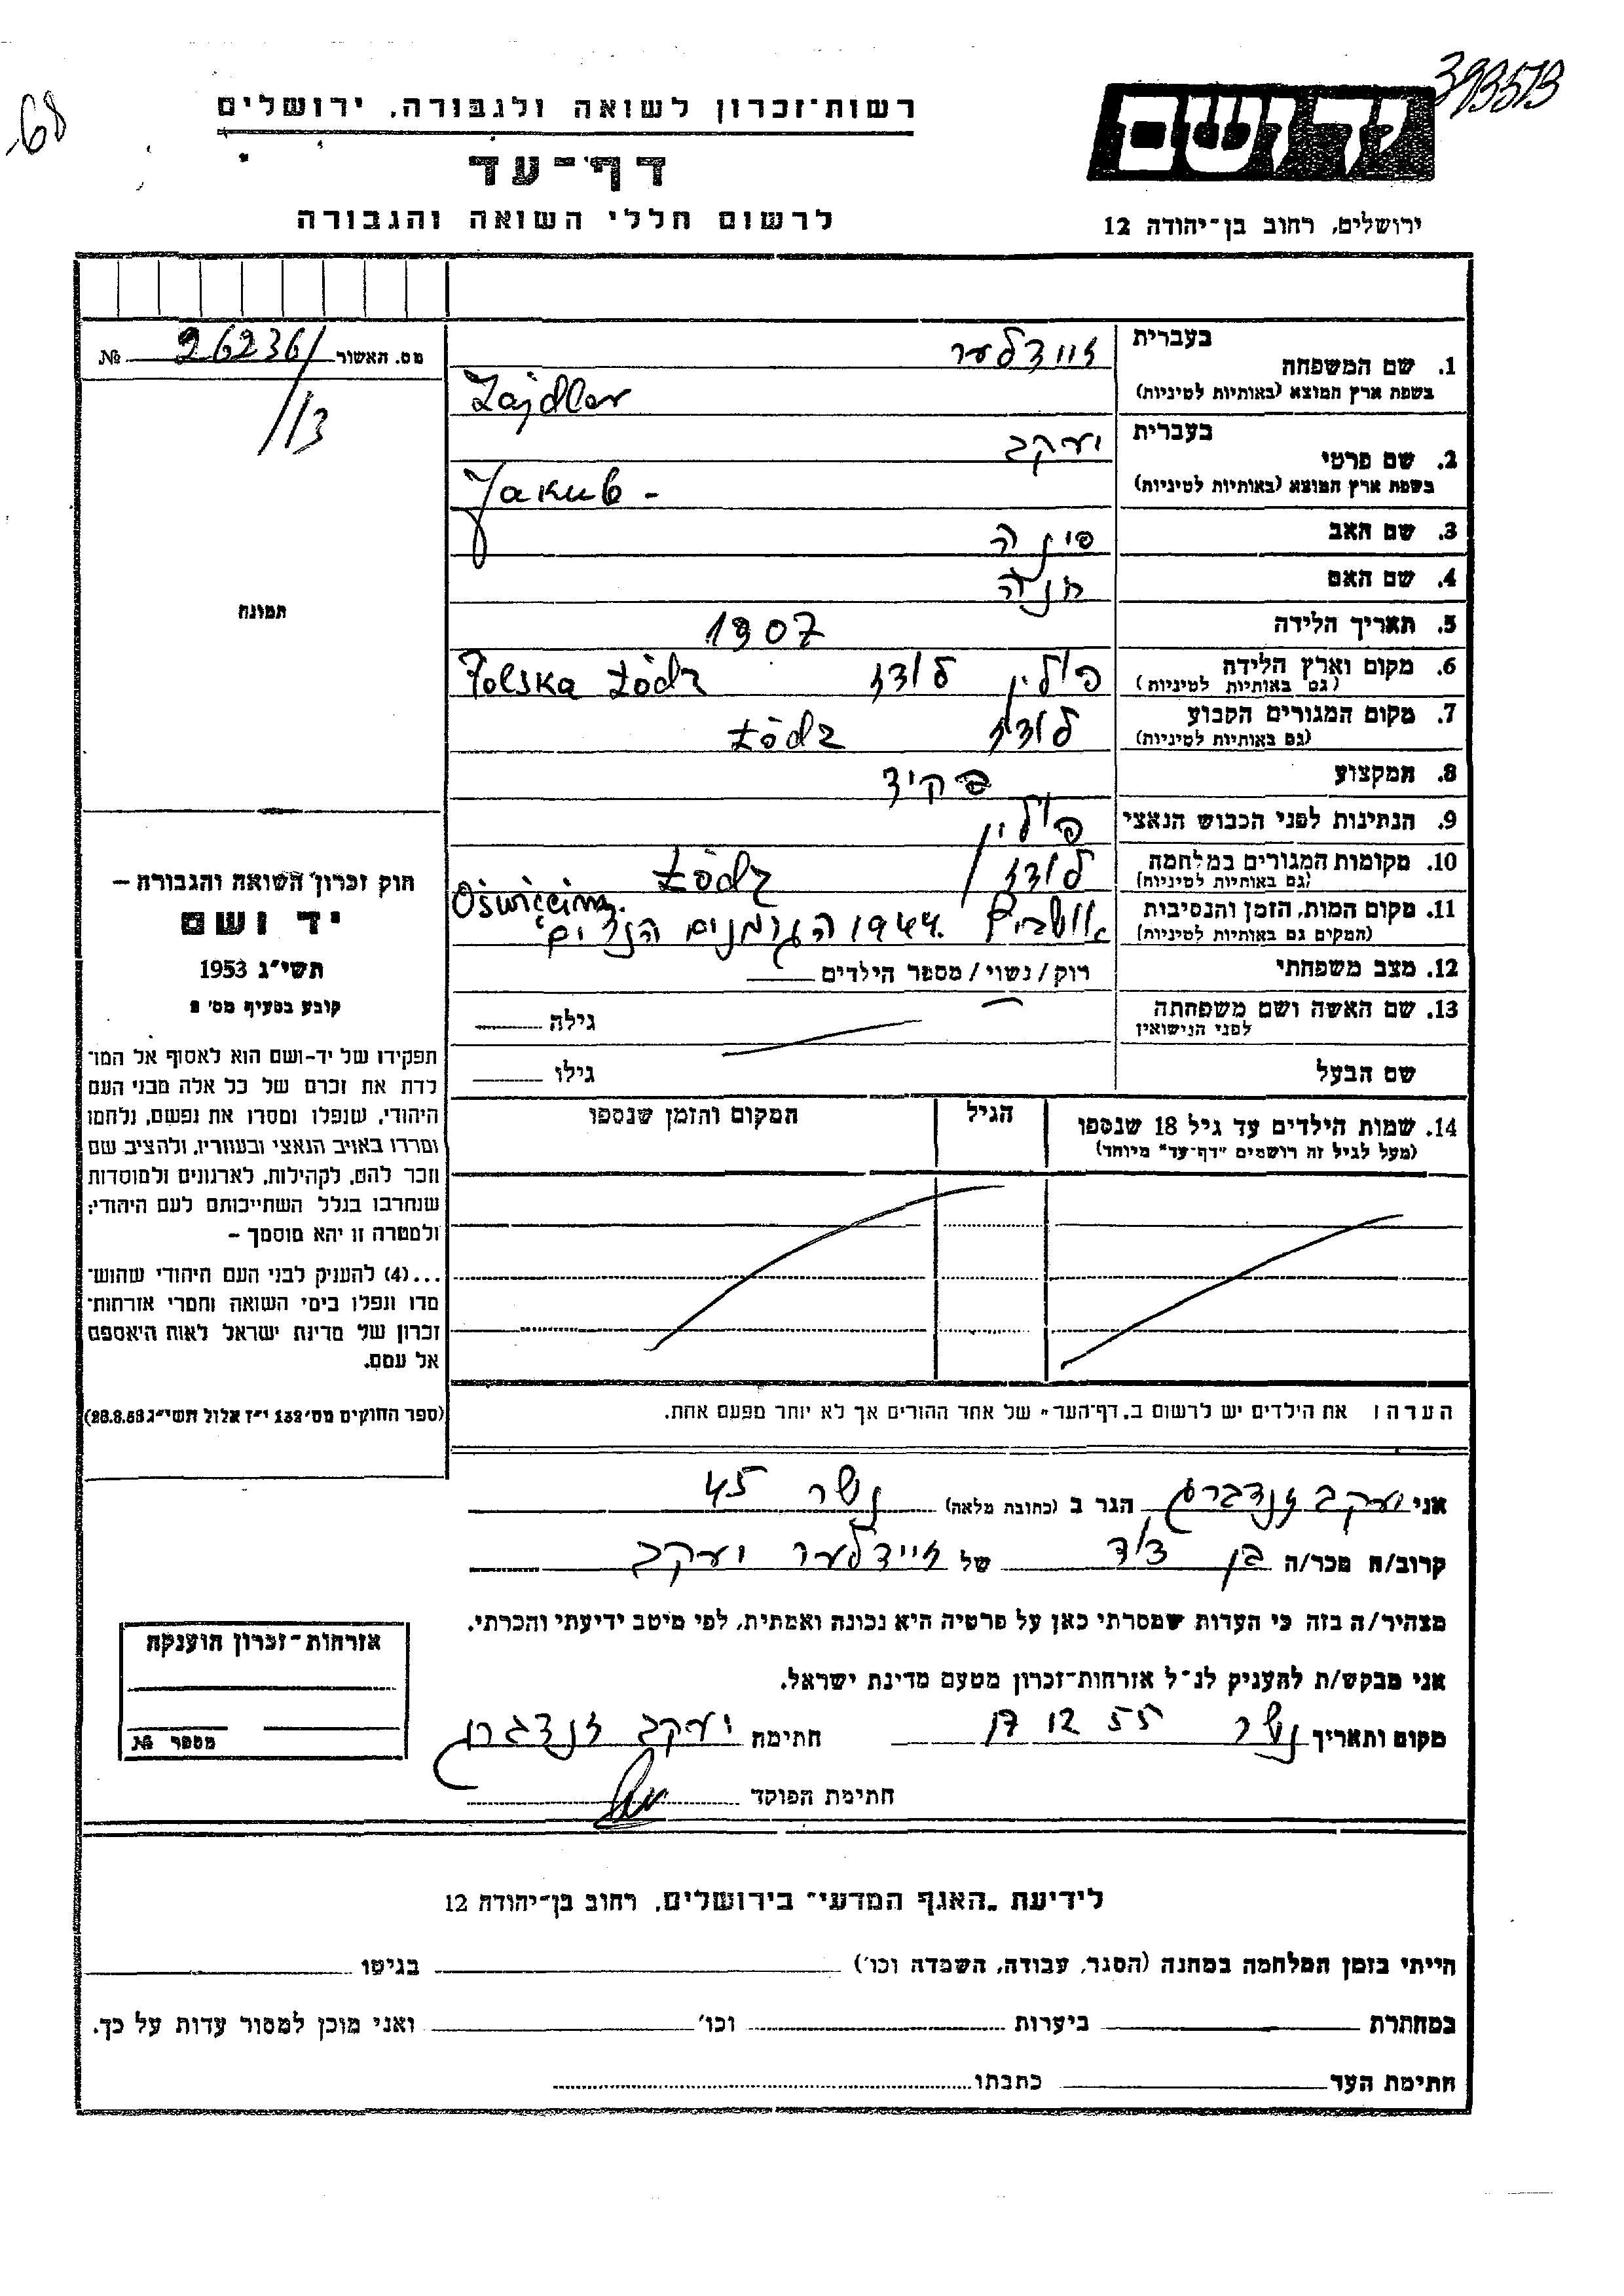 393573
68
רשות־זכרון לשואה ולגבורה, ירושלים
יד ושם
דף־עד
לרשום חללי השואה והגבורה
ירושלים, רחוב בן־יהודה 12
מס. האשור 26236/ №
/13
בעברית זיידלער
1. שם המשפחה
בשפת ארץ המוצא (באותיות לטיניות) Zajdler
בעברית יעקב
2. שם פרטי
בשפת ארץ המוצא (באותיות לטיניות) Jakub -
3. שם האב פינה
4. שם האם חנה
תמונה
5. תאריך הלידה 1907
6. מקום וארץ הלידה פולין לודז Polska Łódz
(גם באותיות לטיניות)
7. מקום המגורים הקבוע לודז Łódz
(גם באותיות לטיניות)
8. המקצוע פקיד
9. הנתינות לפני הכבוש הנאצי פולין
10. מקומות המגורים במלחמה לודז Łódz
(גם באותיות לטיניות)
11. מקום המות, הזמן והנסיבות Oświęcim.
(המקום גם באותיות לטיניות) 1944. הגרמנים הנצים
12. מצב משפחתי רוק/נשוי/מספר הילדים
13. שם האשה ושם משפחתה גילה
לפני הנישואין
שם הבעל גילו
14. שמות הילדים עד גיל 18 שנספו הגיל המקום והזמן שנספו
(מעל לגיל זה רושמים "דף־עד" מיוחד)
חוק זכרון השואה והגבורה –
יד ושם
תשי"ג 1953
קובע בסעיף מס' 2
תפקידו של יד-ושם הוא לאסוף אל המו־
לדת את זכרם של כל אלה מבני העם
היהודי, שנפלו ומסרו את נפשם, נלחמו
ומרדו באויב הנאצי ובעוזריו, ולהציב שם
וזכר להם, לקהילות, לארגונים ולמוסדות
שנחרבו בגלל השתייכותם לעם היהודי;
ולמטרה זו יהא מוסמך –
...(4) להעניק לבני העם היהודי שהוש־
מדו ונפלו בימי השואה והמרי אזרחות־
זכרון של מדינת ישראל לאות היאספם
אל עמם.
(ספר החוקים מס' 132 י"ז אלול תשי"ג 28.8.53)
הערה: את הילדים יש לרשום ב"דף־העד" של אחד ההורים אך לא יותר מפעם אחת.
אני יעקב זנדברג הגר ב (כתובת מלאה) נשר 45
קרוב/ה מכר/ה בן דוד של זיידלער יעקב
מצהיר/ה בזה כי העדות שמסרתי כאן על פרטיה היא נכונה ואמתית, לפי מיטב ידיעתי והכרתי.
אני מבקש/ת להעניק לנ"ל אזרחות־זכרון מטעם מדינת ישראל.
מקום ותאריך נשר 17 12 55 חתימה יעקב זנדברג
חתימת הפוקד
אזרחות־זכרון הוענקה
מספר №
לידיעת "האגף המדעי" בירושלים, רחוב בן־יהודה 12
הייתי בזמן המלחמה במחנה (הסגר, עבודה, השמדה וכו') בגיטו
במחתרת ביערות וכו' ואני מוכן למסור עדות על כך.
חתימת העד כתבתו